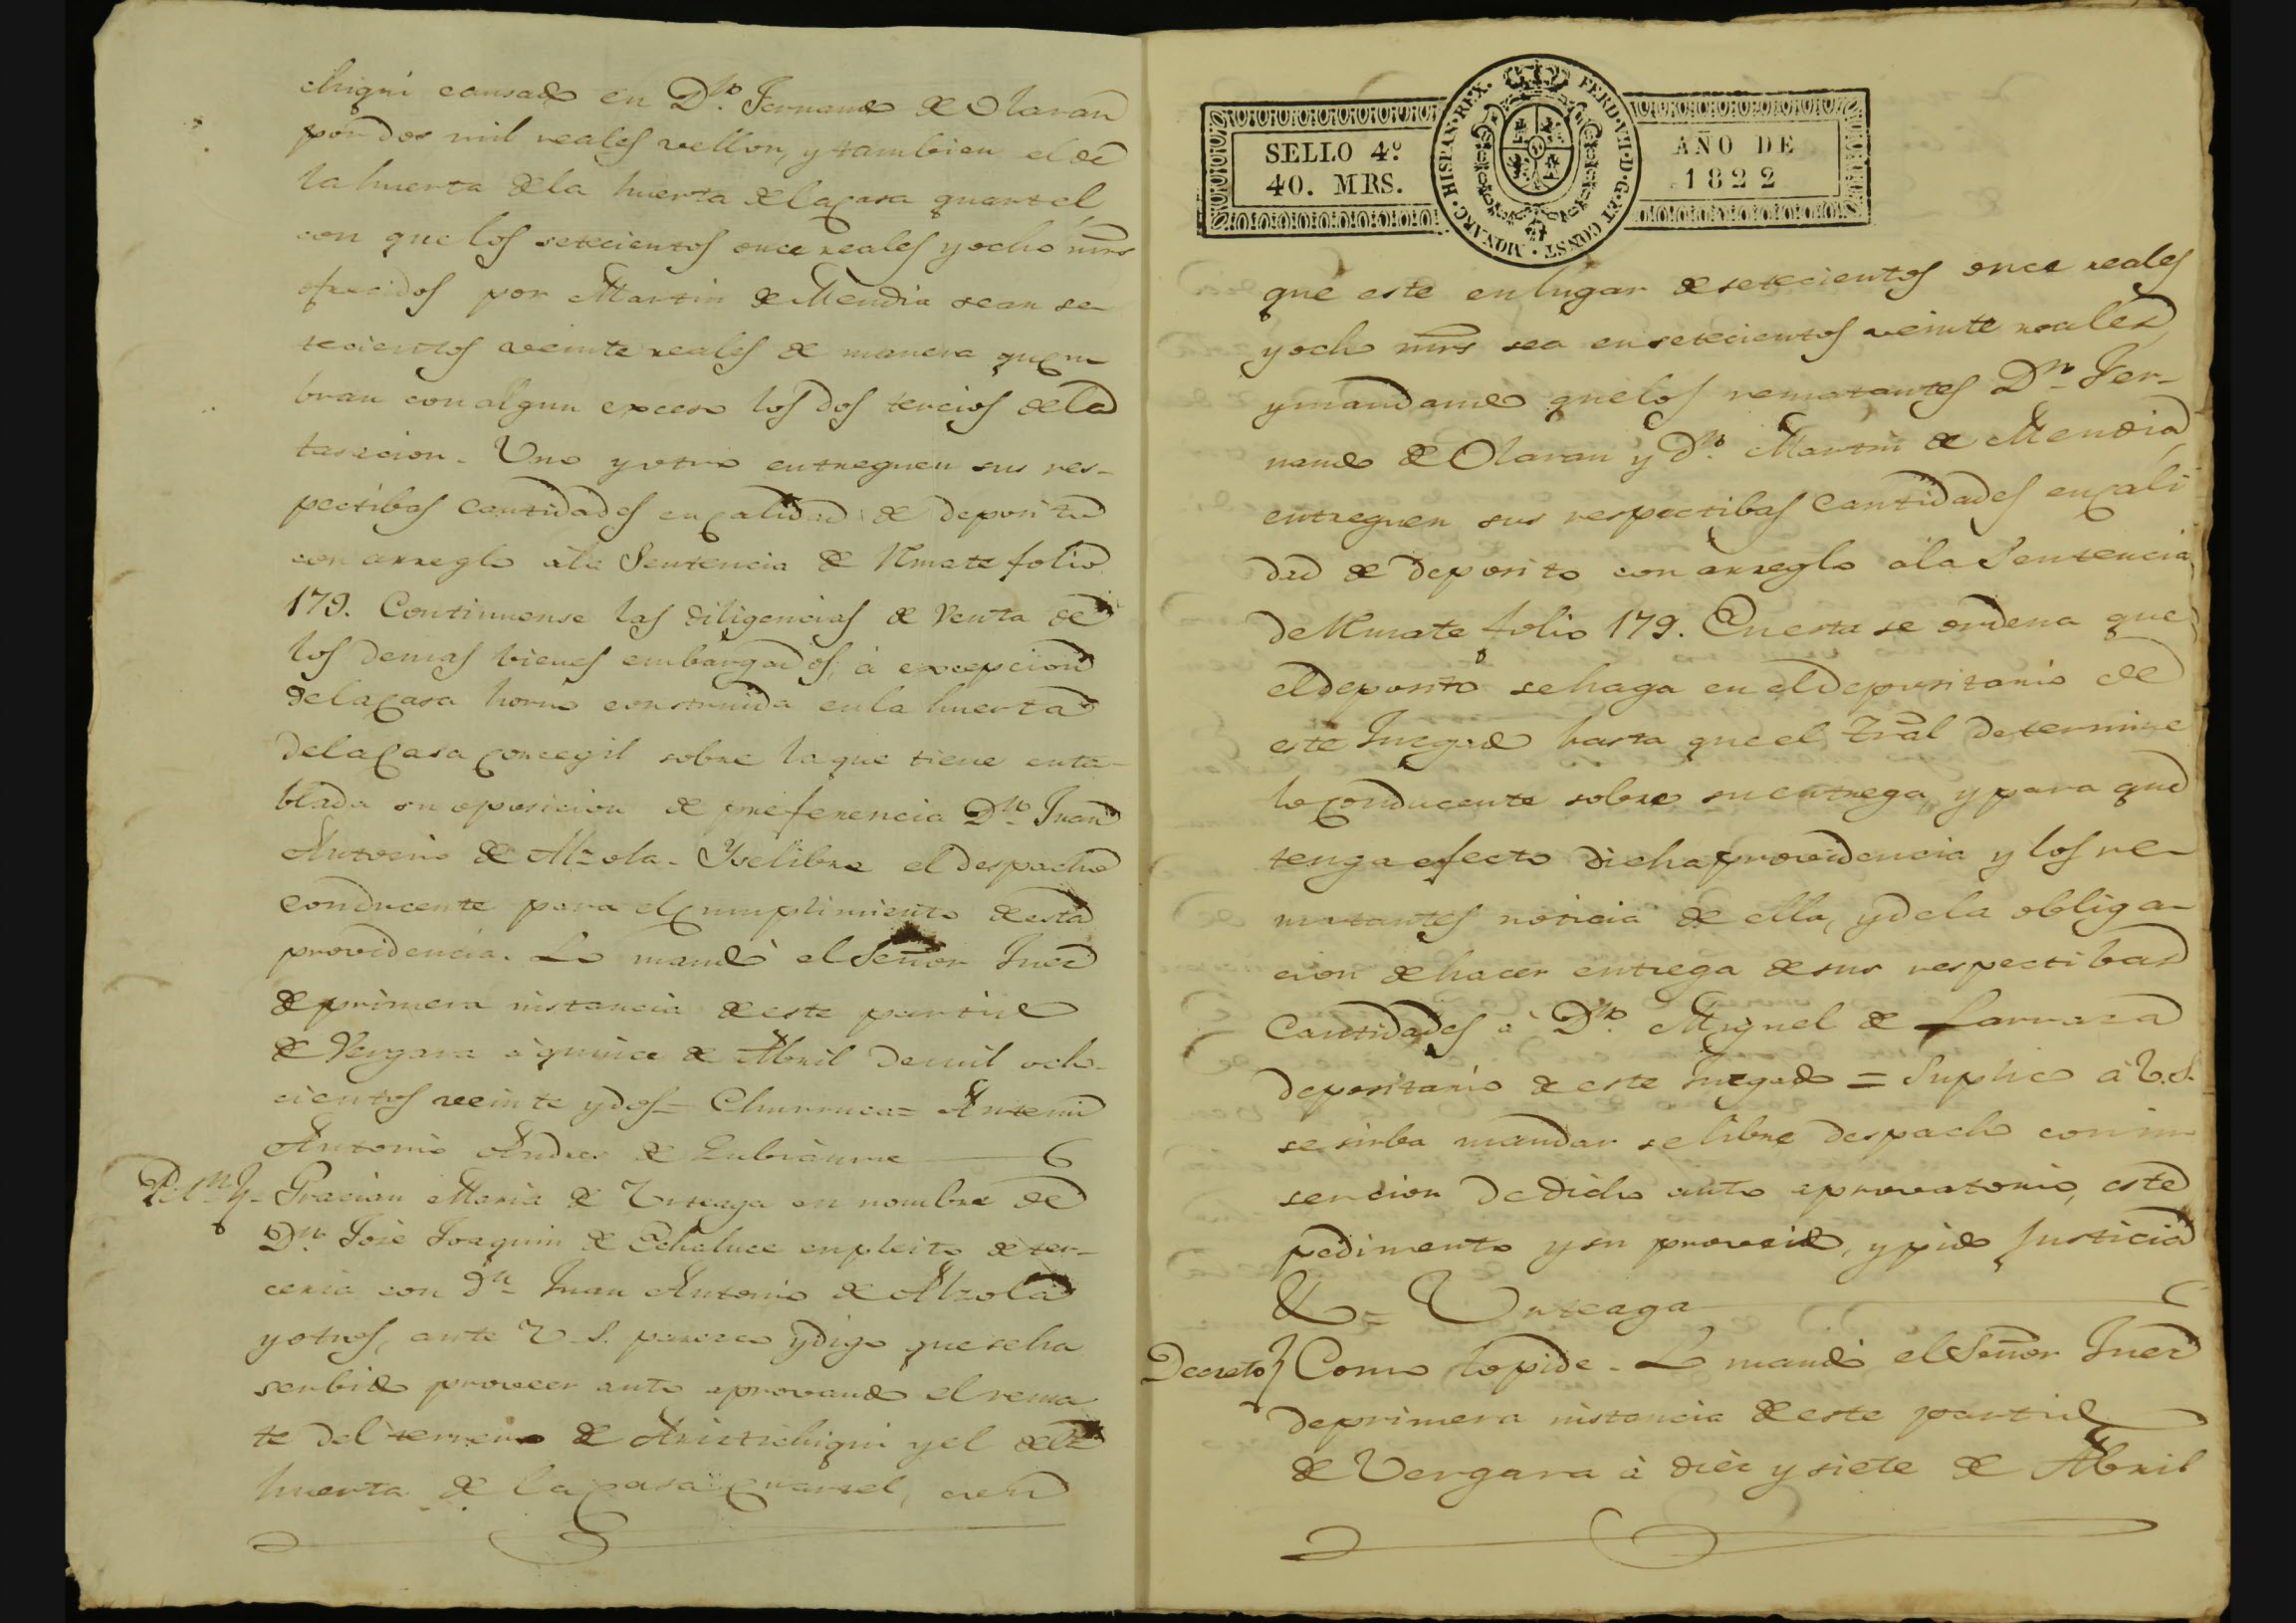 chiqui causado en Dn. Fernando de Olaran
por dos mil reales vellon, y tambien el de
la huerta de la huerta de la casa quartel
con que los setecientos once reales y ocho mrs
ofrecidos por Martin de Mendia sean se-
tecientos veinte reales de manera que cu-
bran con algun exceso los dos tercios de la
tasacion. Uno y otro entreguen sus res-
pectibas cantidades en calidad de deposito
con arreglo a la Sentencia de Rmate folio
179. Continuense las diligencias de Venta de
los demas bienes embargados, à excepcion
de la casa horno construida en la huerta
de la Casa Concegil sobre la que tiene enta-
blada su oposicion de preferencia Dn. Juan
Antonio de Alzola. Y se libre el despacho
conducente para el cumplimiento de esta
providencia. Lo mandó el Señor Juez
de primera instancia de este partido
de Vergara à quince de Abril de mil ocho-
cientos veinte y dos = Churruca = Antemi
Antonio Andres de
Gracian Maria de Urteaga en nombre de
Dn. José Joaquin de Echaluce en pleito de ter-
ceria con Dn. Juan Antonio de Alzola
y otros, ante V. S. parezco y digo que se ha
serbido proveer auto aprovando el rema-
te del terreno de Aristichiqui y el de la
huerta de la casa Cuartel, con
SELLO 4º.
40. MRS.
HISPAN·REX. FERD·VII·D·G·ET CONST·MONARC·
AÑO DE
1822
que este en lugar de setecientos once reales
y ocho mrs sea en setecientos veinte reales,
y mandando que los rematantes Dn. Fer-
nando de Olaran y Dn. Martin de Mendia,
entreguen sus respectibas Cantidades en cali
dad de deposito con arreglo à la Sentencia
de Rmate folio 179. En esta se ordena que
el deposito se haga en el depositario de
este Juzgado hasta que el Tral determine
lo conducente sobre su entrega, y para que
tenga efecto dicha providencia y los re-
matantes noticia de ella, y de la obliga-
cion de hacer entrega de sus respectibas
Cantidades à Dn. Miguel de Larraza
depositario de este Juzgado = Suplico à V.S.
se sirba mandar se libre despacho con in-
sercion de dicho auto aprovatorio, este
pedimento y su proveido, y pido Justicia
&= Urteaga
Decreto} Como lo pide. Lo mandó el Señor Juez
de primera instancia de este partido
de Vergara à diez y siete de Abril